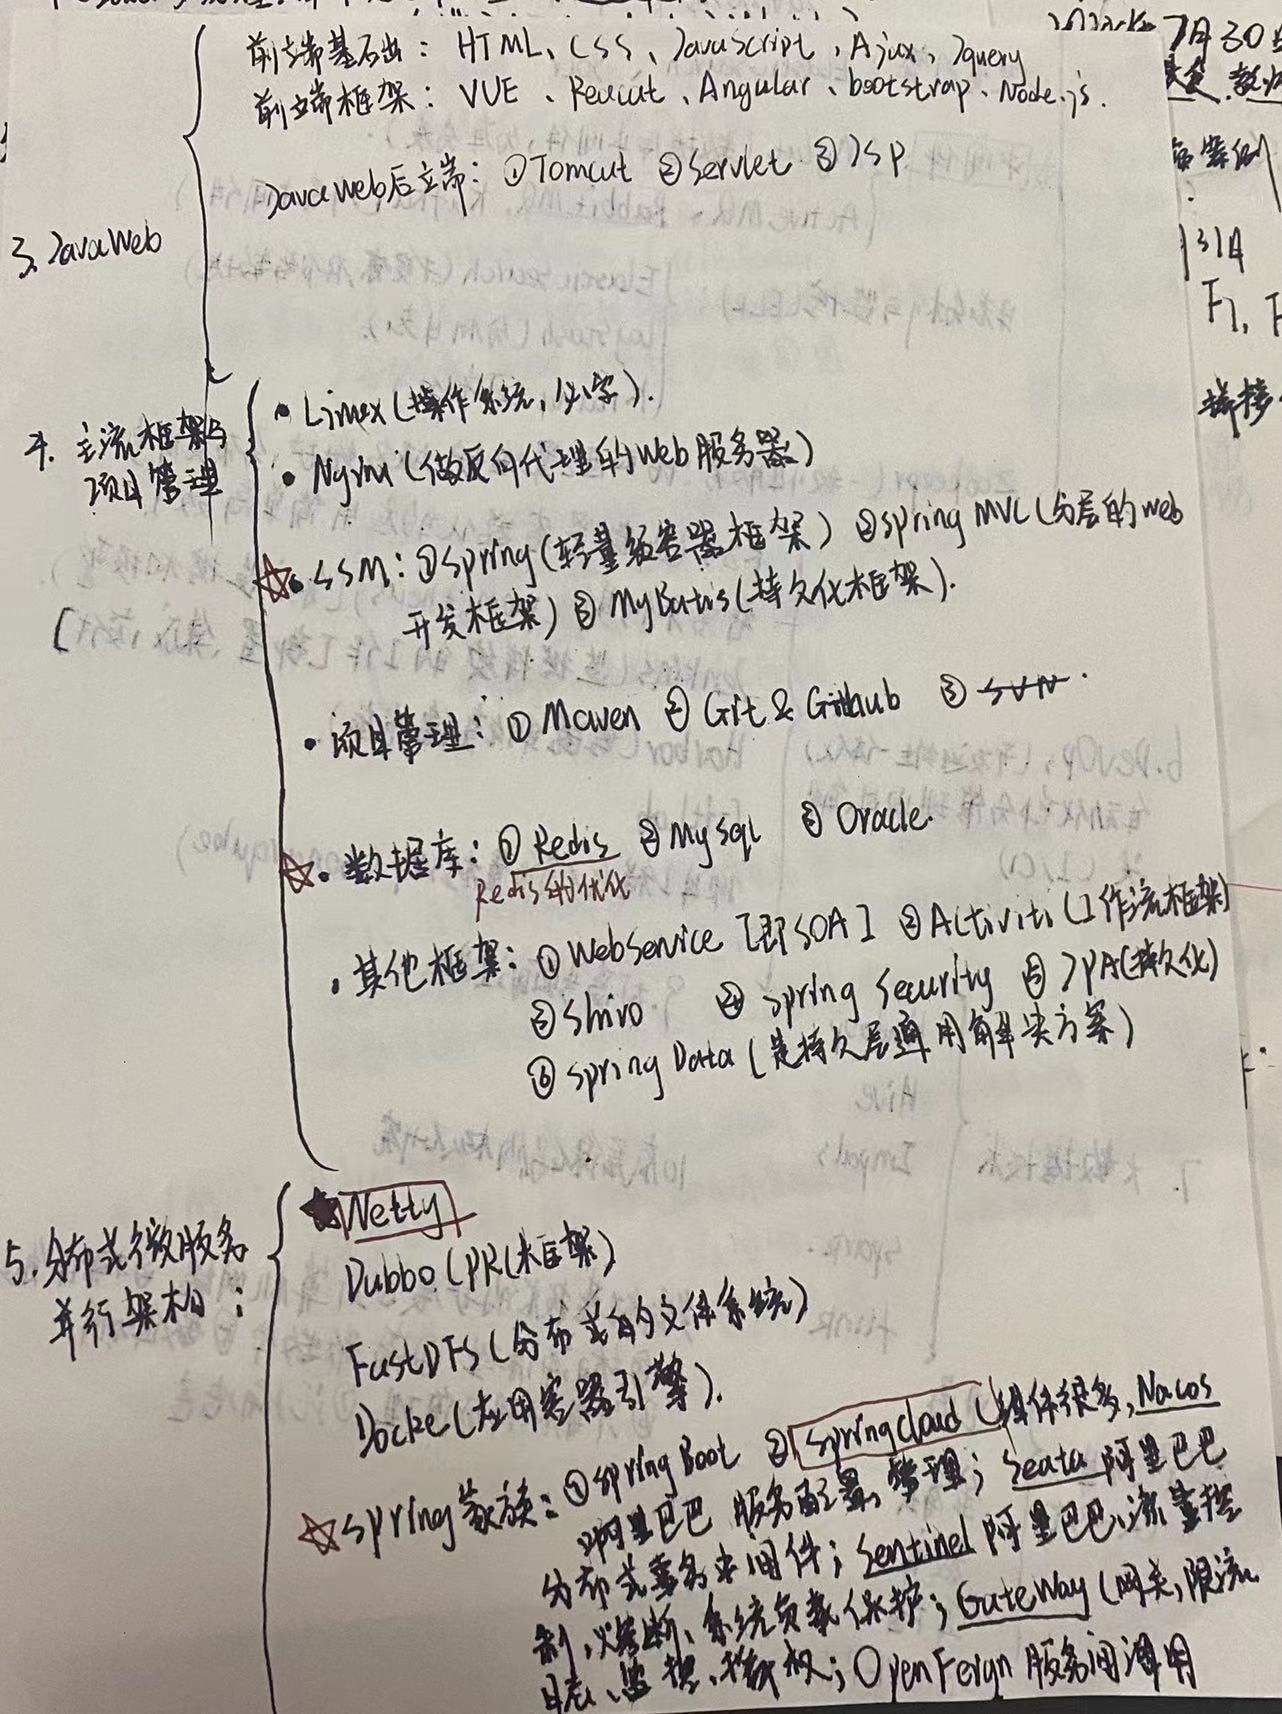 前端基础：HTML、CSS、JavaScript、Ajax、Jquery
前端框架：VUE、React、Angular、bootstrap、Node.js.
JavaWeb后端：①Tomcat ②Servlet ③JSP
3. JavaWeb
4. 主流框架与
项目管理
• Linux(操作系统,必学).
• Nginx(做反向代理的web服务器)
☆• SSM：①Spring(轻量级容器框架) ②Spring MVC(分层的web
开发框架) ③MyBatis(持久化框架).
• 项目管理：①Maven ②Git & Github ③SVN.
☆• 数据库：①Redis ②MySql ③Oracle.
Redis的优化
• 其他框架：①WebService [即SOA] ②Activiti(工作流框架)
③Shiro ④Spring Security ⑤JPA(持久化)
⑥Spring Data(是持久层通用解决方案)
5. 分布式微服务
并行架构：
★Netty
Dubbo(PRC框架)
FastDFS(分布式的文件系统)
Docke(应用容器引擎).
☆Spring家族：①Spring Boot ②Spring cloud(组件很多,Nacos
阿里巴巴 服务配置、管理；Seata 阿里巴巴
分布式事务中间件；Sentinel 阿里巴巴、流量控
制,熔断、系统负载保护；GateWay(网关,限流、
日志、监控、授权；OpenFeign 服务间调用
7月30
案例
拼接